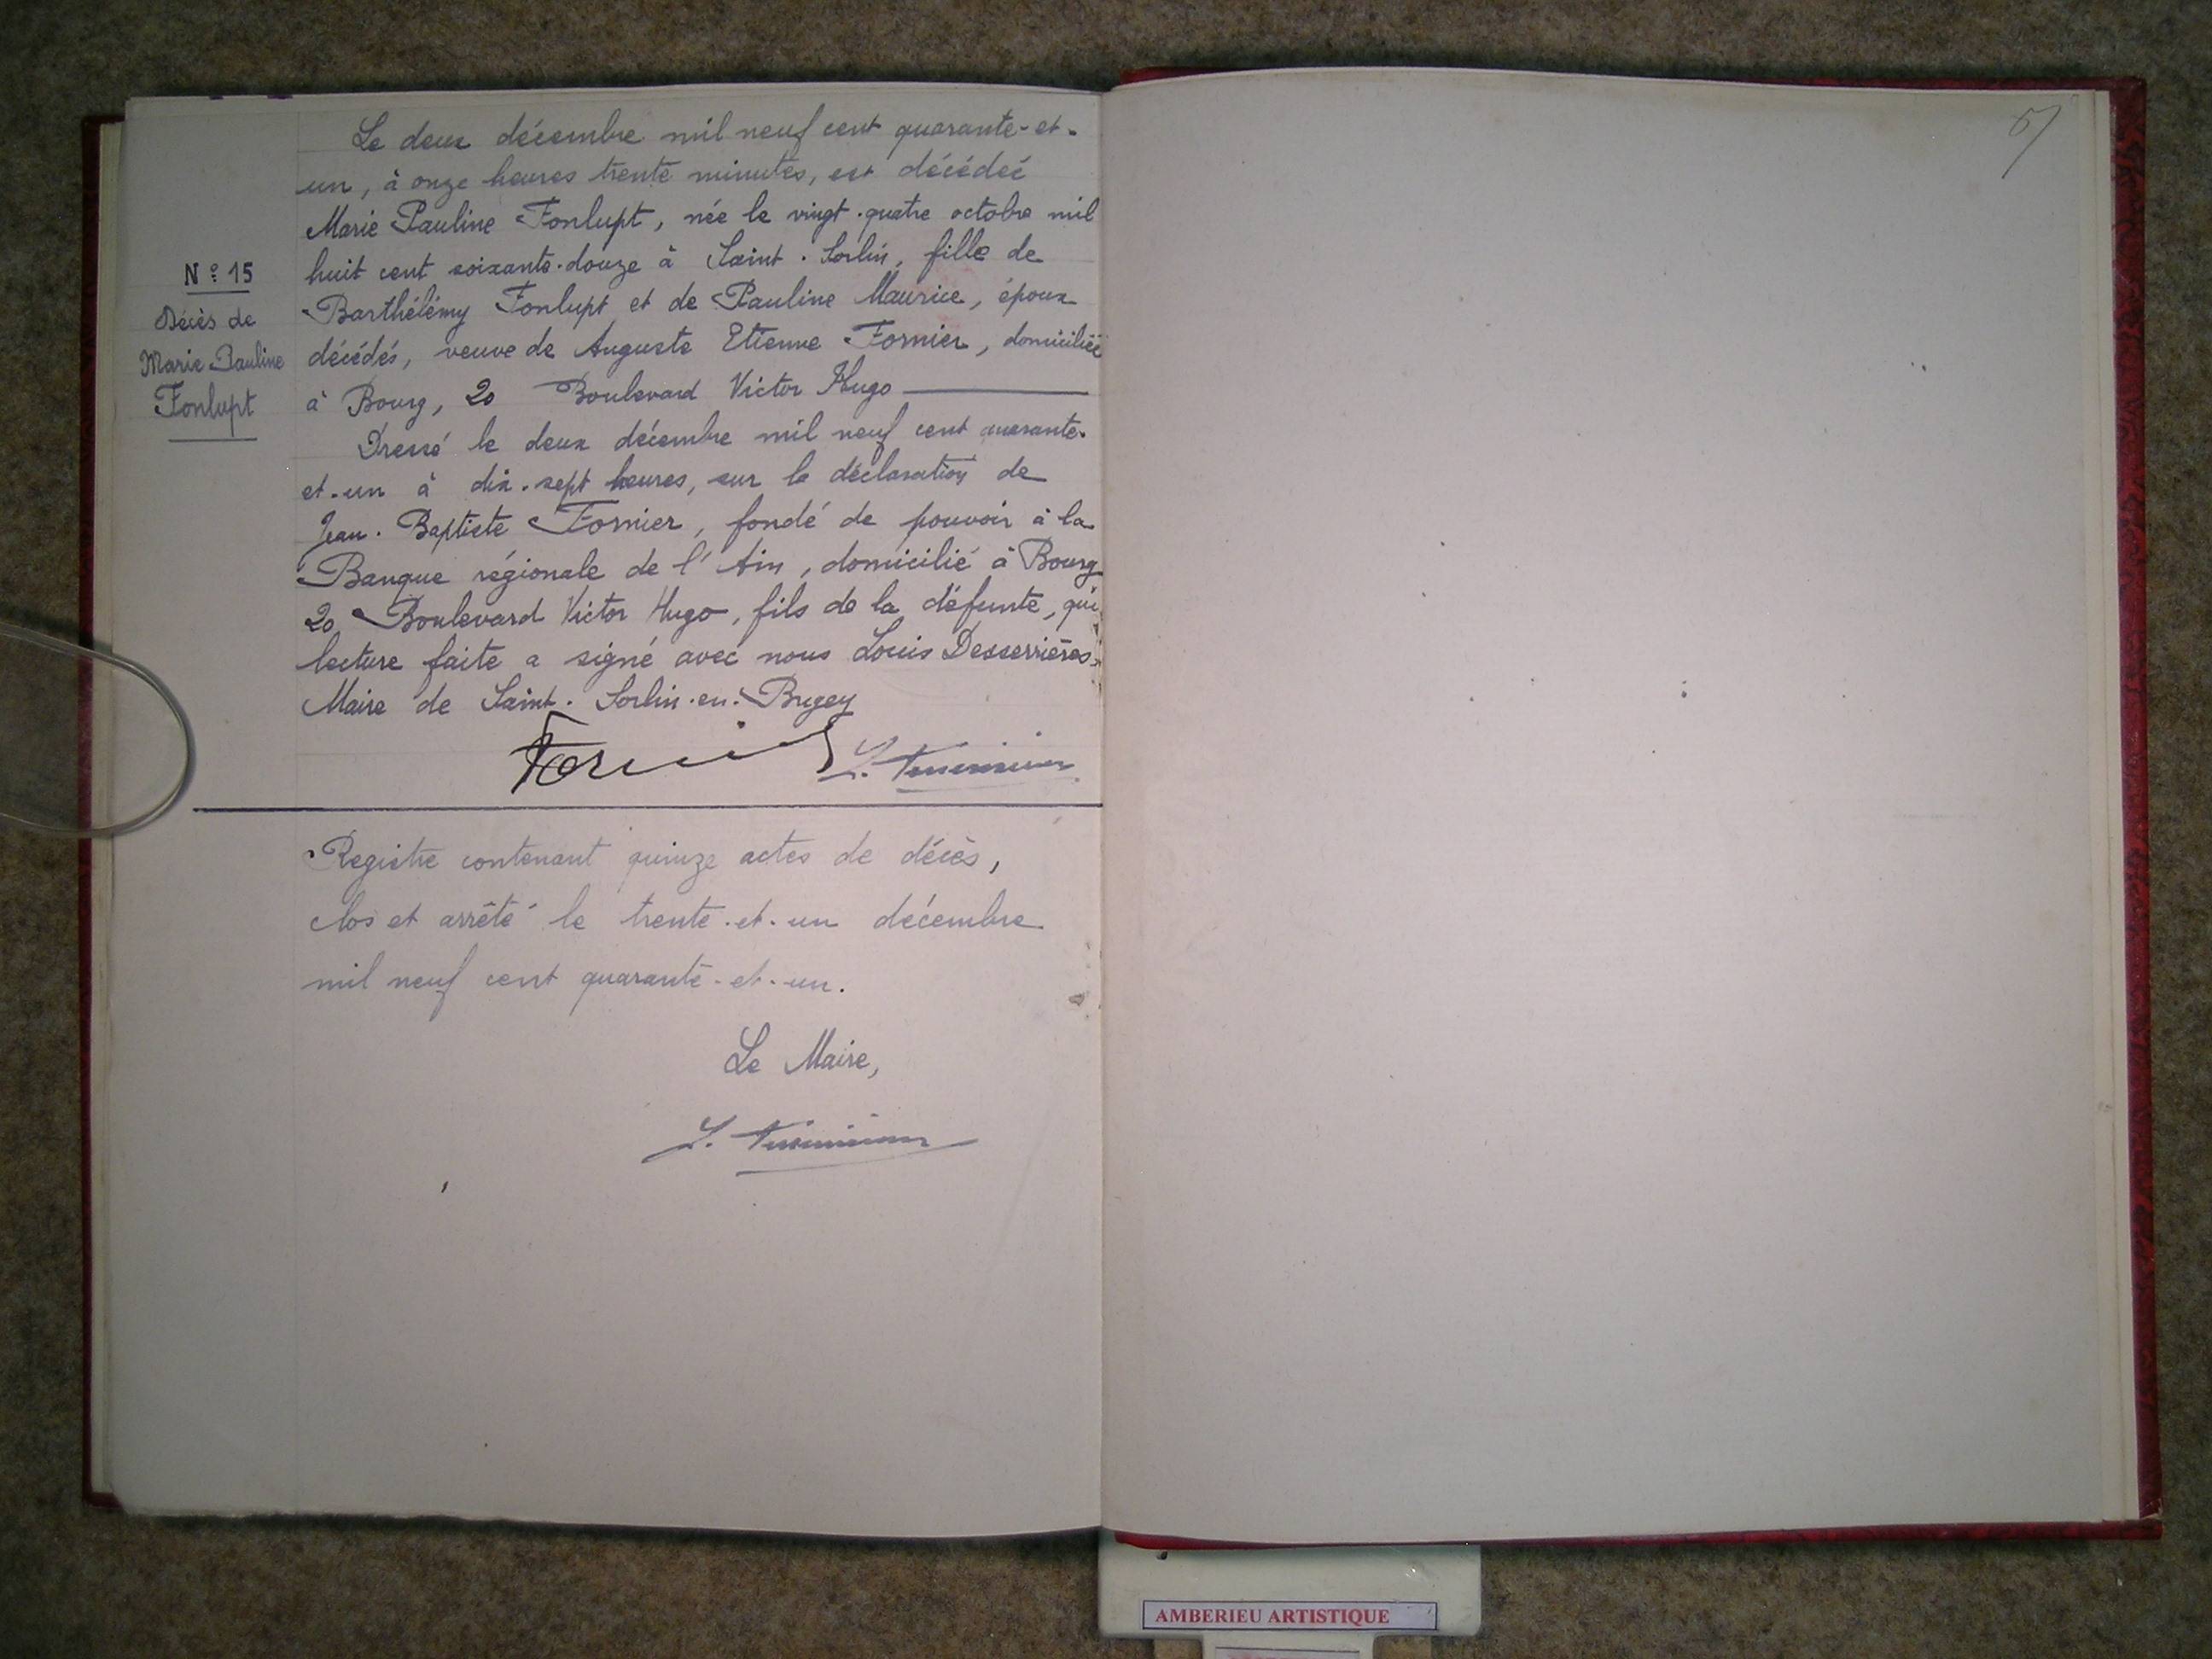 Le deux décembre mil neuf cent quarante-et-
un, à onze heures trente minutes, est décédée
Marie Pauline Fonlupt, née le vingt-quatre octobre mil
huit cent soixante-douze à Saint-Sorlin, fille de
Barthélémy Fonlupt et de Pauline Maurice, époux
décédés, veuve de Auguste Etienne Fornier, domiciliée
à Bourg, 20 Boulevard Victor Hugo
Dressé le deux décembre mil neuf cent quarante-
et-un à dix-sept heures, sur la déclaration de
Jean-Baptiste Fornier, fondé de pouvoir à la
Banque régionale de l'Ain, domicilié à Bourg
20 Boulevard Victor Hugo, fils de la défunte, qui
lecture faite a signé avec nous Louis Desserrières
Maire de Saint-Sorlin-en-Bugey
N° 15
Décès de
Marie Pauline
Fonlupt
Registre contenant quinze actes de décès,
clos et arrêté le trente-et-un décembre
mil neuf cent quarante-et-un.
Le Maire,
AMBERIEU ARTISTIQUE